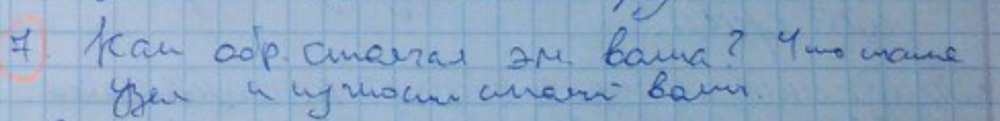 7. Как обр. стоячая эл. волна? Что такое
узел и пучность стоячей волны.